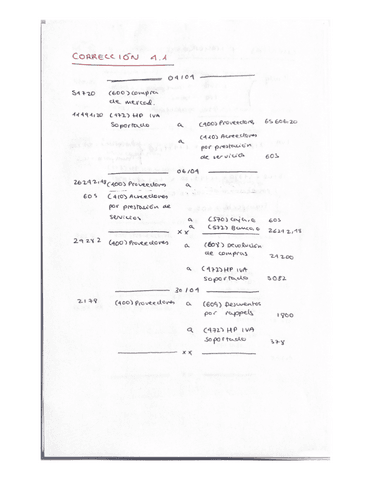 CORRECCIÓN 4.1
04/04
(600) compra
de mercad.
(472) HP IVA
Soportado
a
(400) Proveedores
a
(410) Acreedores
por prestación
de servicios
603
06/04
(400) Proveedores
a
603
(410) Acreedores
por prestación de
servicios
a
(570) Caja, €
603
a
(572) Bancos
xx
24282
(400) Proveedores
a
(608) Devolución
de compras
a
(472) HP IVA
soportado
30/04
2178
(400) Proveedores
a
(609) Descuentos
por rappels
1800
a
(472) HP IVA
Soportado
378
xx